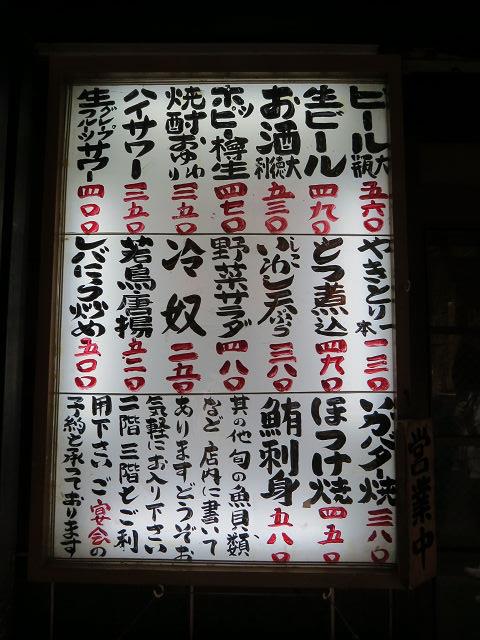 ビール大瓶 五六〇
生ビール 四九〇
お酒大徳利 五三〇
ホッピー樽生 四七〇
焼酎おゆわり 三五〇
ハイサワー 三五〇
生グレープフルーツサワー 四〇〇
やきとり一本 一三〇
もつ煮込 四九〇
いわし天ぷら 三八〇
野菜サラダ 四八〇
冷奴 二五〇
若鳥唐揚 五二〇
レバにら炒め 五〇〇
いかバター焼 三八〇
ほっけ焼 四五〇
鮪刺身 五八〇
其の他旬の魚貝類
など店内に書いて
ありますどうぞお
気軽にお入り下さい
二階三階もご利
用下さいご宴会の
予約を承っております
営業中